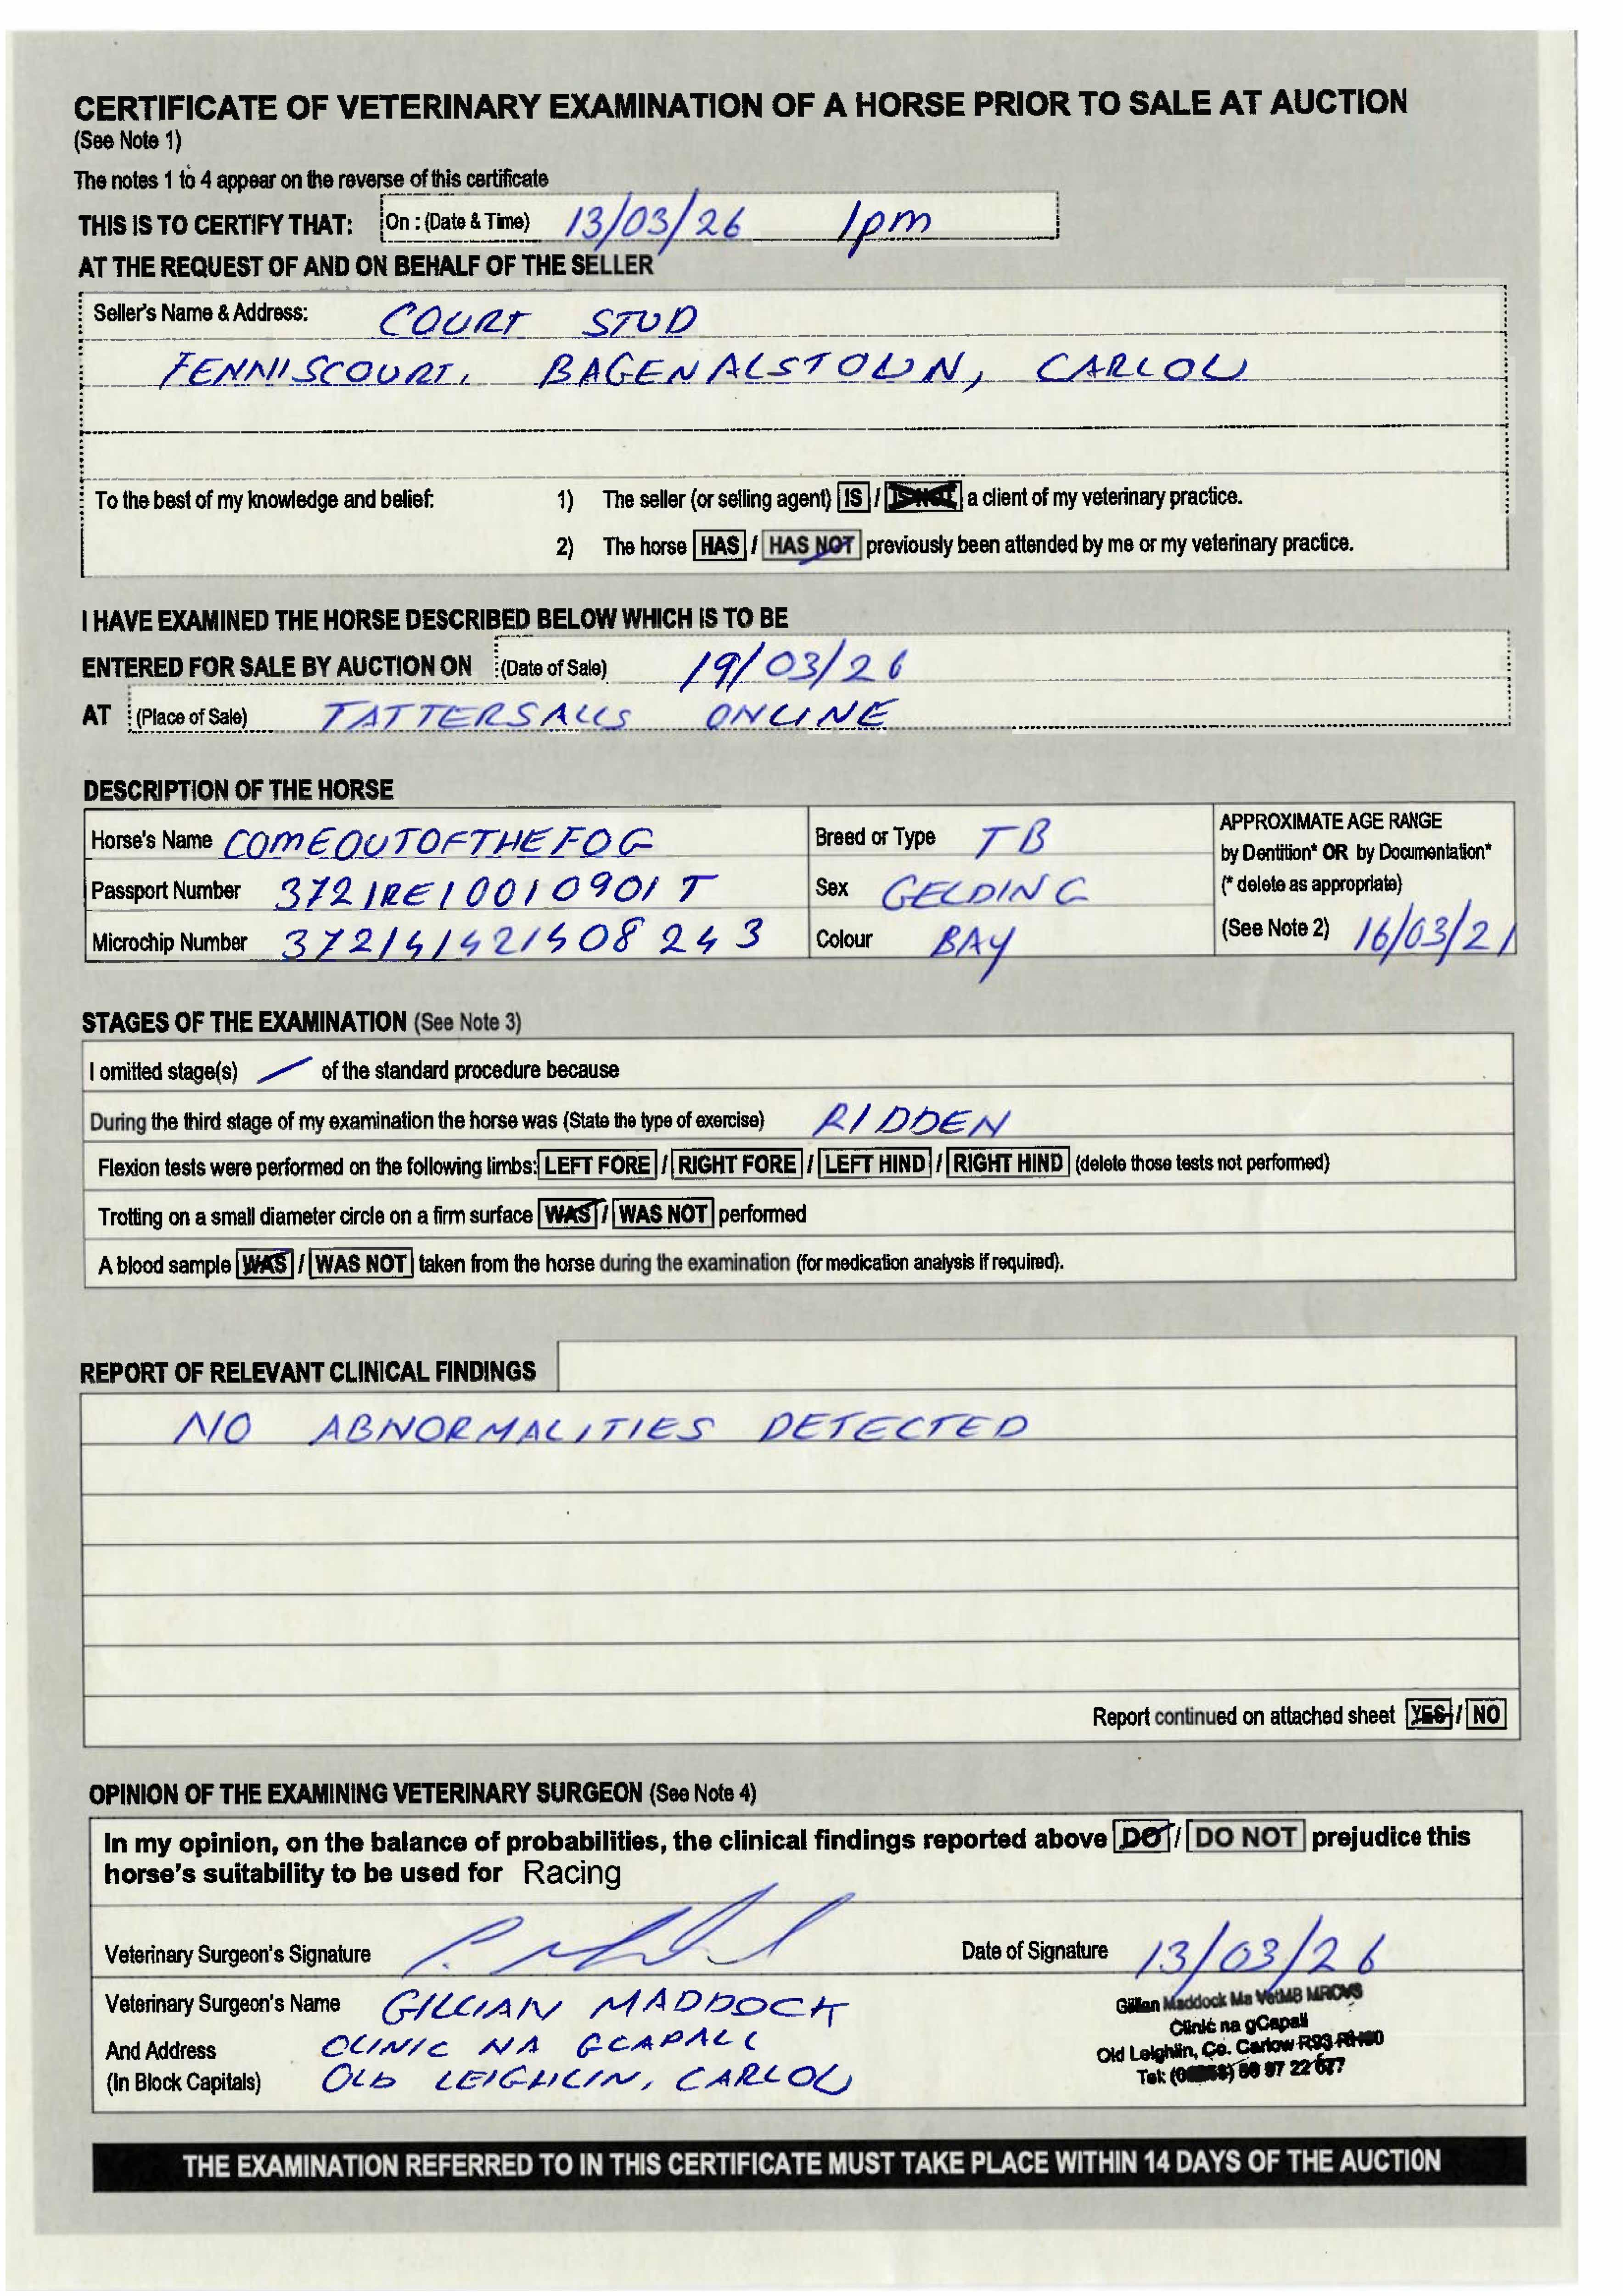 CERTIFICATE OF VETERINARY EXAMINATION OF A HORSE PRIOR TO SALE AT AUCTION
(See Note 1)
The notes 1 to 4 appear on the reverse of this certificate
THIS IS TO CERTIFY THAT: On : (Date & Time) 13/03/26 1pm
AT THE REQUEST OF AND ON BEHALF OF THE SELLER
Seller's Name & Address: COURT STUD
FENNISCOURT, BAGENALSTOWN, CARLOW
To the best of my knowledge and belief: 1) The seller (or selling agent) IS / IS NOT a client of my veterinary practice.
2) The horse HAS / HAS NOT previously been attended by me or my veterinary practice.
I HAVE EXAMINED THE HORSE DESCRIBED BELOW WHICH IS TO BE
ENTERED FOR SALE BY AUCTION ON (Date of Sale) 19/03/26
AT (Place of Sale) TATTERSALLS ONLINE
DESCRIPTION OF THE HORSE
Horse's Name COMEOUTOFTHEFOG Breed or Type TB
Passport Number 372IRE10010901T Sex GELDING
Microchip Number 372141421408243 Colour BAY
APPROXIMATE AGE RANGE
by Dentition* OR by Documentation*
(* delete as appropriate)
(See Note 2) 16/03/21
STAGES OF THE EXAMINATION (See Note 3)
I omitted stage(s) / of the standard procedure because
During the third stage of my examination the horse was (State the type of exercise) RIDDEN
Flexion tests were performed on the following limbs: LEFT FORE / RIGHT FORE / LEFT HIND / RIGHT HIND (delete those tests not performed)
Trotting on a small diameter circle on a firm surface WAS / WAS NOT performed
A blood sample WAS / WAS NOT taken from the horse during the examination (for medication analysis if required).
REPORT OF RELEVANT CLINICAL FINDINGS
NO ABNORMALITIES DETECTED
Report continued on attached sheet YES / NO
OPINION OF THE EXAMINING VETERINARY SURGEON (See Note 4)
In my opinion, on the balance of probabilities, the clinical findings reported above DO / DO NOT prejudice this
horse's suitability to be used for Racing
Veterinary Surgeon's Signature Date of Signature 13/03/26
Veterinary Surgeon's Name GILLIAN MADDOCK
And Address CLINIC NA GCAPALL
(In Block Capitals) OLD LEIGHLIN, CARLOW
Gillian Maddock Ma VetMB MRCVS
Clinic na gCapall
Old Leighlin, Co. Carlow R93
Tel: 97 22
THE EXAMINATION REFERRED TO IN THIS CERTIFICATE MUST TAKE PLACE WITHIN 14 DAYS OF THE AUCTION